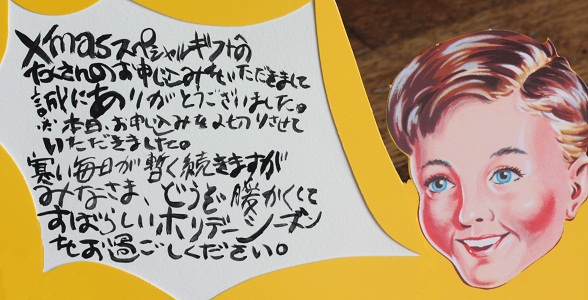 Xmasスペシャルギフトの
たくさんのお申し込みをいただきまして
誠にありがとうございました。
本日、お申し込みを〆切りさせて
いただきました。
寒い毎日が暫く続きますが
みなさま、どうぞ暖かくして
すばらしいホリデーシーズン
をお過ごしください。